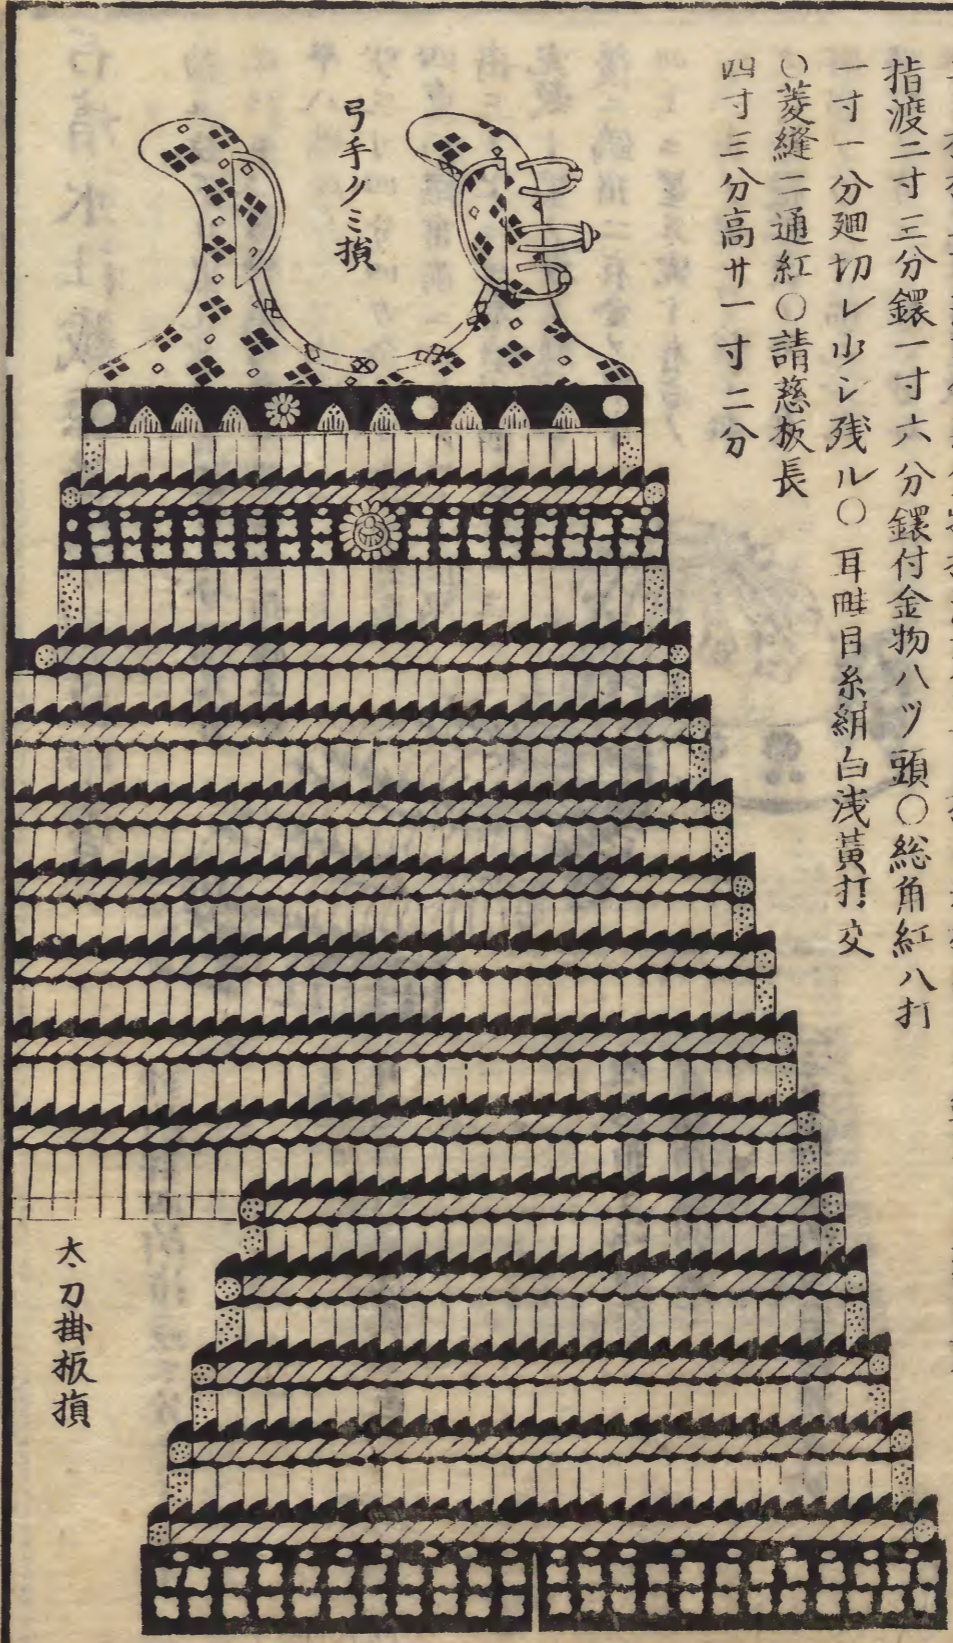 指渡二寸三分鐶一寸六分鐶付金物八ツ頭〇総角紅八打
一寸一分廻切レ少シ残ル〇耳畦目糸絹白浅黄打交
〇菱縫二通紅〇請慈板長
四寸三分高サ一寸二分
弓手クミ損
太刀掛板損